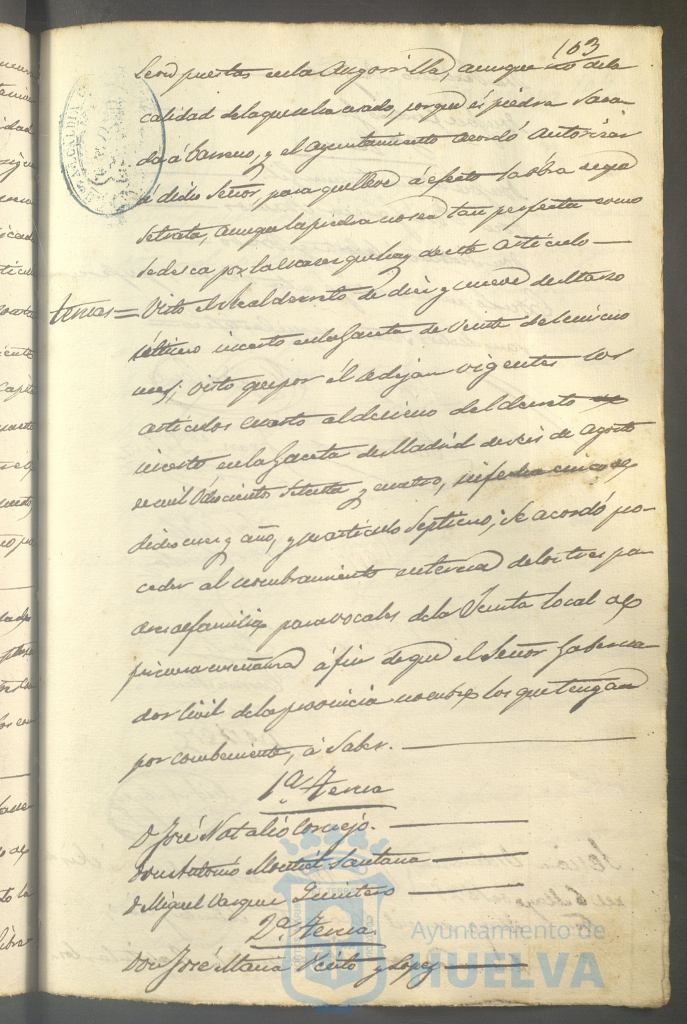 103
ALCALDIA
seis puestas en la Angorrilla, aunque no de la
calidad de la que se ha usado, porque es piedra saca-
da á barreno, y el Ayuntamiento acordó autorizar
á dicho Señor para que lleve á efecto la obra segun
se trata, aunque la piedra no sea tan perfecta como
se desea por la escases que hay de este artículo —
ternas = Visto el Real decreto de diez y nueve de Marzo
último inserto en la Gaceta de veinte del mismo
mes; visto que por él se dejan vigentes los
artículos cuarto al décimo del decreto
inserto en la Gaceta de Madrid de seis de Agosto
de mil ochocientos setenta y cuatro, su fecha cinco de
dicho mes y año, y su artículo septimo; Se acordó pro-
ceder al nombramiento en terna de los tres pa-
dres de familia para vocales de la Junta local de
primera enseñanza á fin de que el Señor Goberna-
dor Civil de la provincia nombre los que tengan
por conbeniente, á saber. —
1ª Terna
D. José Natalio Cornejo. —
Don Antonio Montiel Santana —
D. Miguel Vazquez Quintero —
2ª Terna.
Don José Maria y Lopez —
Ayuntamiento de
HUELVA